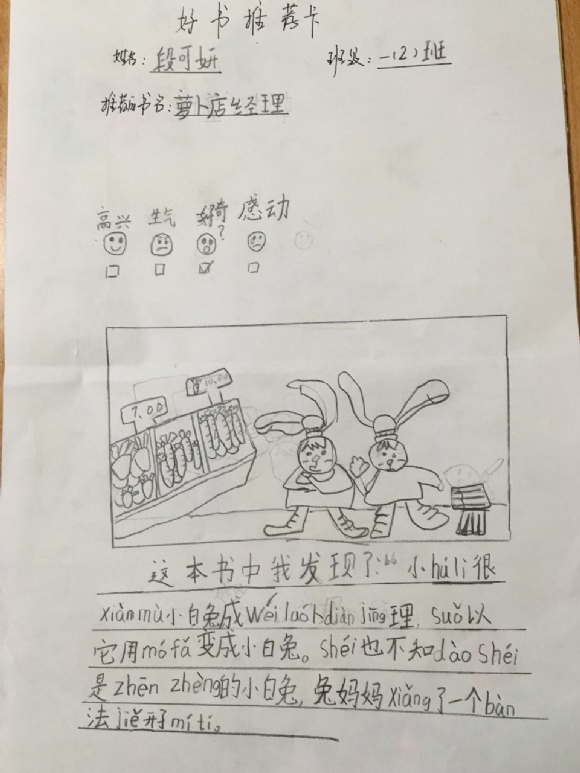 好书推荐卡
姓名：段可妍 班级：一（2）班
推荐书名：萝卜店经理
高兴 生气 好奇？ 感动
7.00 10.00
这本书中我发现了：“小húli很
xiànmù小白兔成wéi luó卜diàn jīng理，suǒ以
它用mófǎ变成小白兔。shéi也不知dào shéi
是zhēn zhèng的小白兔，兔妈妈xiǎng了一个bàn
法jiě开了mí tí。